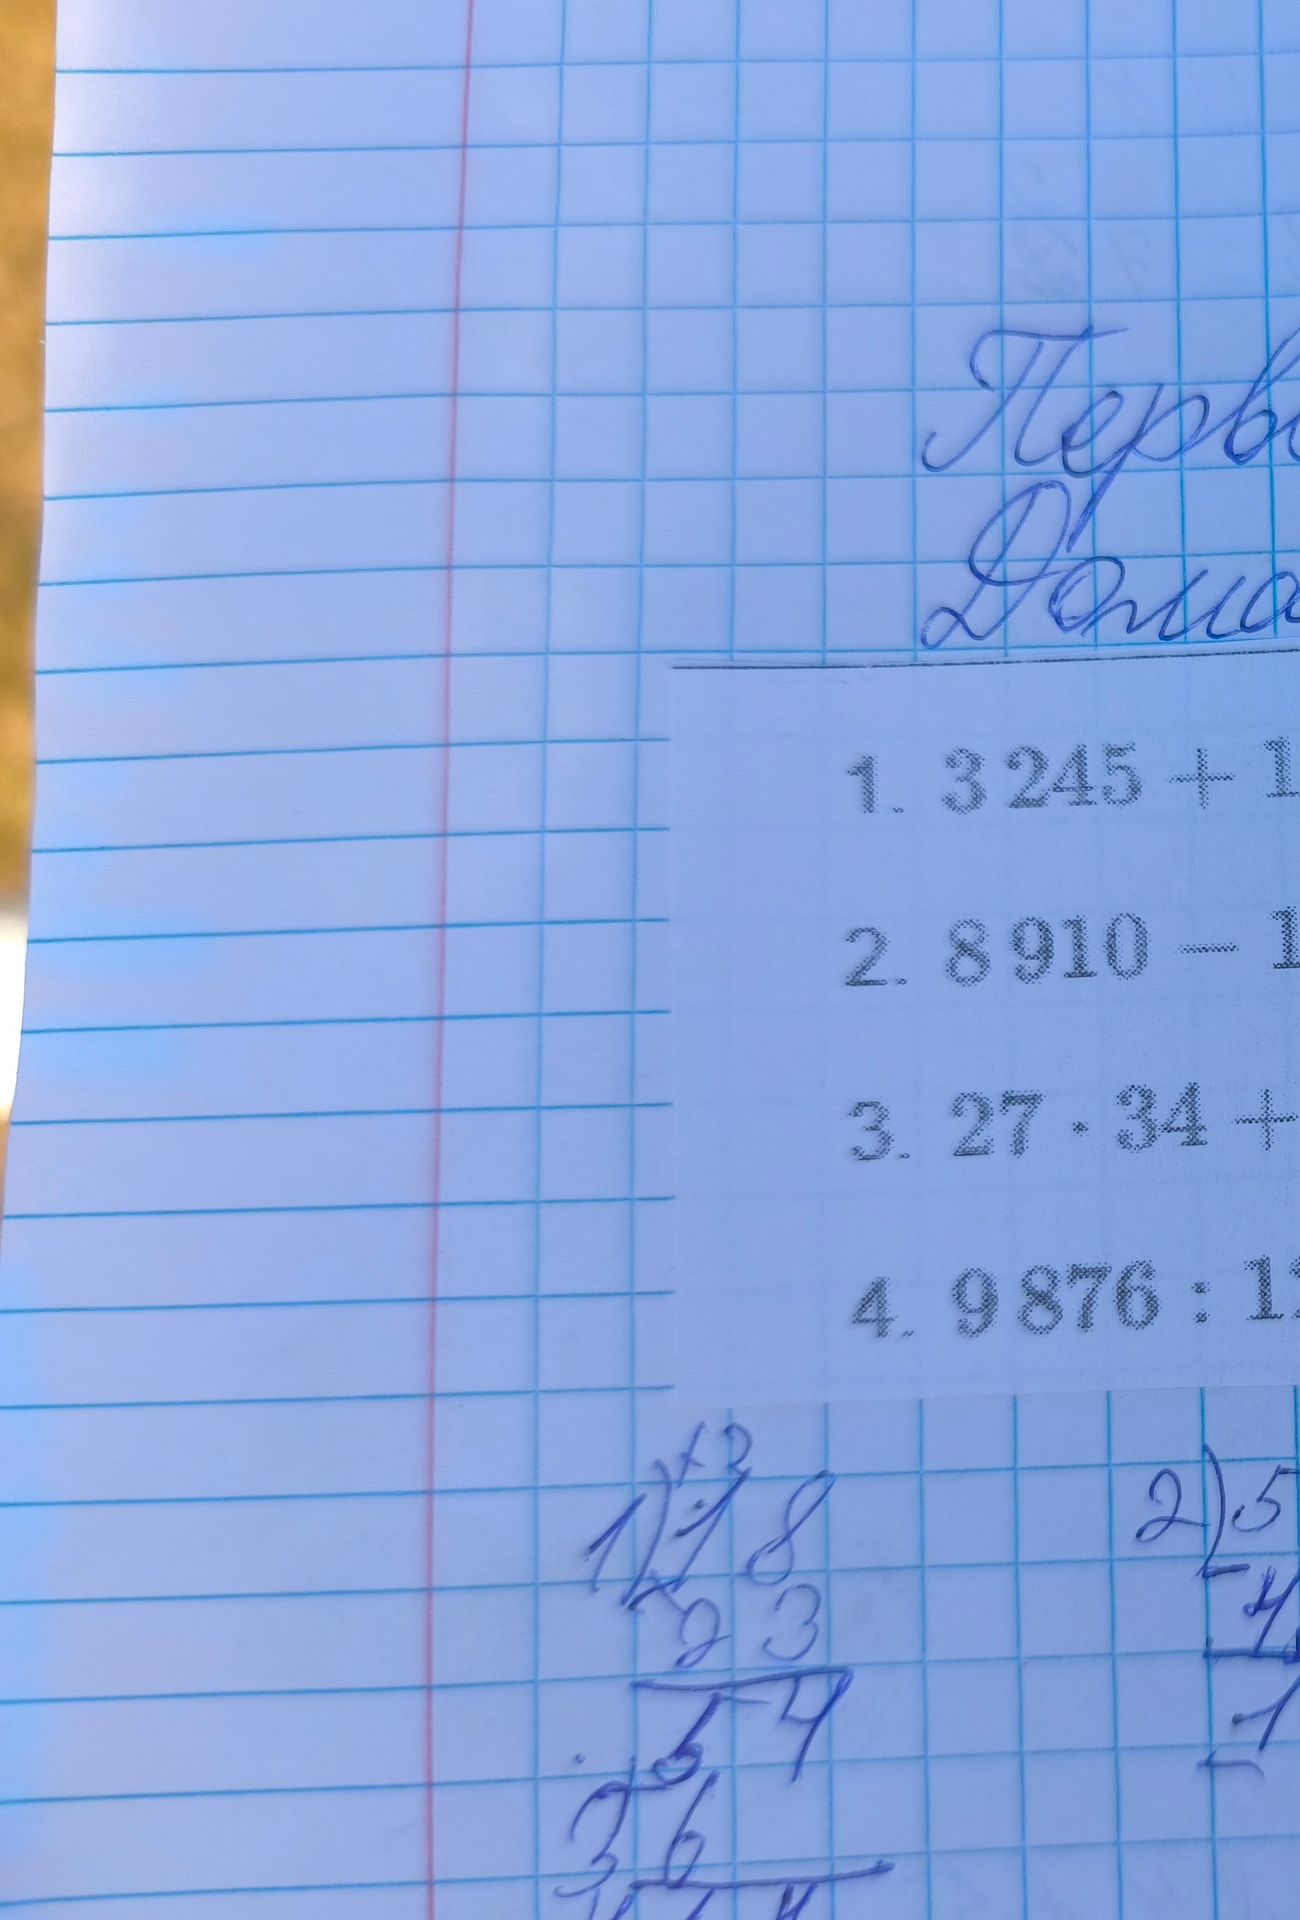 Перв
Дома
1. 3 245 + 1
2. 8 910 − 1
3. 27 · 34 +
4. 9 876 : 1
+2
1) 18
× 23
54
36
2) 5
− 4
1